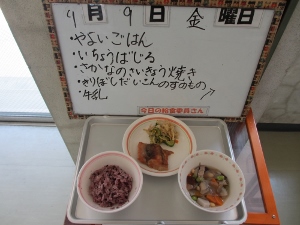 9月9日 金曜日
・やよいごはん
・いちょうばじる
・さかなのさいきょう焼き
・きりぼしだいこんのすのもの
・牛乳
今日の給食委員さん